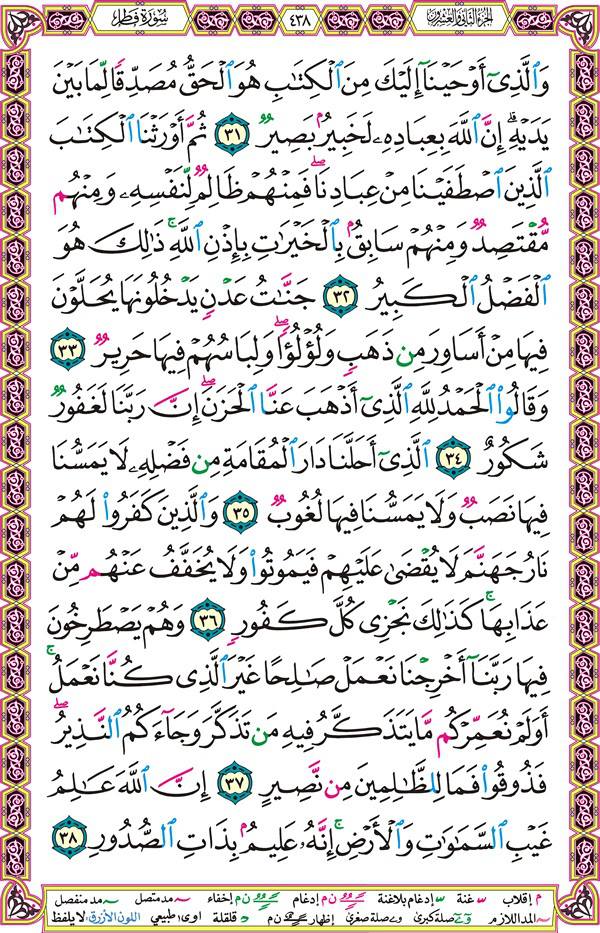 الجزء الثاني والعشرون
٤٣٨
سورة فاطر
وَٱلَّذِىٓ أَوْحَيْنَآ إِلَيْكَ مِنَ ٱلْكِتَٰبِ هُوَ ٱلْحَقُّ مُصَدِّقًا لِّمَا بَيْنَ
يَدَيْهِ ۗ إِنَّ ٱللَّهَ بِعِبَادِهِۦ لَخَبِيرٌۢ بَصِيرٌ ٣١ ثُمَّ أَوْرَثْنَا ٱلْكِتَٰبَ
ٱلَّذِينَ ٱصْطَفَيْنَا مِنْ عِبَادِنَا ۖ فَمِنْهُمْ ظَالِمٌ لِّنَفْسِهِۦ وَمِنْهُم
مُّقْتَصِدٌ وَمِنْهُمْ سَابِقٌۢ بِٱلْخَيْرَٰتِ بِإِذْنِ ٱللَّهِ ۚ ذَٰلِكَ هُوَ
ٱلْفَضْلُ ٱلْكَبِيرُ ٣٢ جَنَّٰتُ عَدْنٍ يَدْخُلُونَهَا يُحَلَّوْنَ
فِيهَا مِنْ أَسَاوِرَ مِن ذَهَبٍ وَلُؤْلُؤًا ۖ وَلِبَاسُهُمْ فِيهَا حَرِيرٌ ٣٣
وَقَالُوا۟ ٱلْحَمْدُ لِلَّهِ ٱلَّذِىٓ أَذْهَبَ عَنَّا ٱلْحَزَنَ ۖ إِنَّ رَبَّنَا لَغَفُورٌ
شَكُورٌ ٣٤ ٱلَّذِىٓ أَحَلَّنَا دَارَ ٱلْمُقَامَةِ مِن فَضْلِهِۦ لَا يَمَسُّنَا
فِيهَا نَصَبٌ وَلَا يَمَسُّنَا فِيهَا لُغُوبٌ ٣٥ وَٱلَّذِينَ كَفَرُوا۟ لَهُمْ
نَارُ جَهَنَّمَ لَا يُقْضَىٰ عَلَيْهِمْ فَيَمُوتُوا۟ وَلَا يُخَفَّفُ عَنْهُم مِّنْ
عَذَابِهَا ۚ كَذَٰلِكَ نَجْزِى كُلَّ كَفُورٍ ٣٦ وَهُمْ يَصْطَرِخُونَ
فِيهَا رَبَّنَآ أَخْرِجْنَا نَعْمَلْ صَٰلِحًا غَيْرَ ٱلَّذِى كُنَّا نَعْمَلُ ۚ
أَوَلَمْ نُعَمِّرْكُم مَّا يَتَذَكَّرُ فِيهِ مَن تَذَكَّرَ وَجَآءَكُمُ ٱلنَّذِيرُ ۖ
فَذُوقُوا۟ فَمَا لِلظَّٰلِمِينَ مِن نَّصِيرٍ ٣٧ إِنَّ ٱللَّهَ عَٰلِمُ
غَيْبِ ٱلسَّمَٰوَٰتِ وَٱلْأَرْضِ ۚ إِنَّهُۥ عَلِيمٌۢ بِذَاتِ ٱلصُّدُورِ ٣٨
م إقلاب س غنة س إدغام بلاغنة ن م إدغام ن م إخفاء ~ مد متصل ~ مد منفصل
~ المد اللازم و ے صلة كبرى و ے صلة صغرى إظهار ن م د قلقلة اوى؛ طبيعي اللون الأزرق: لا يلفظ